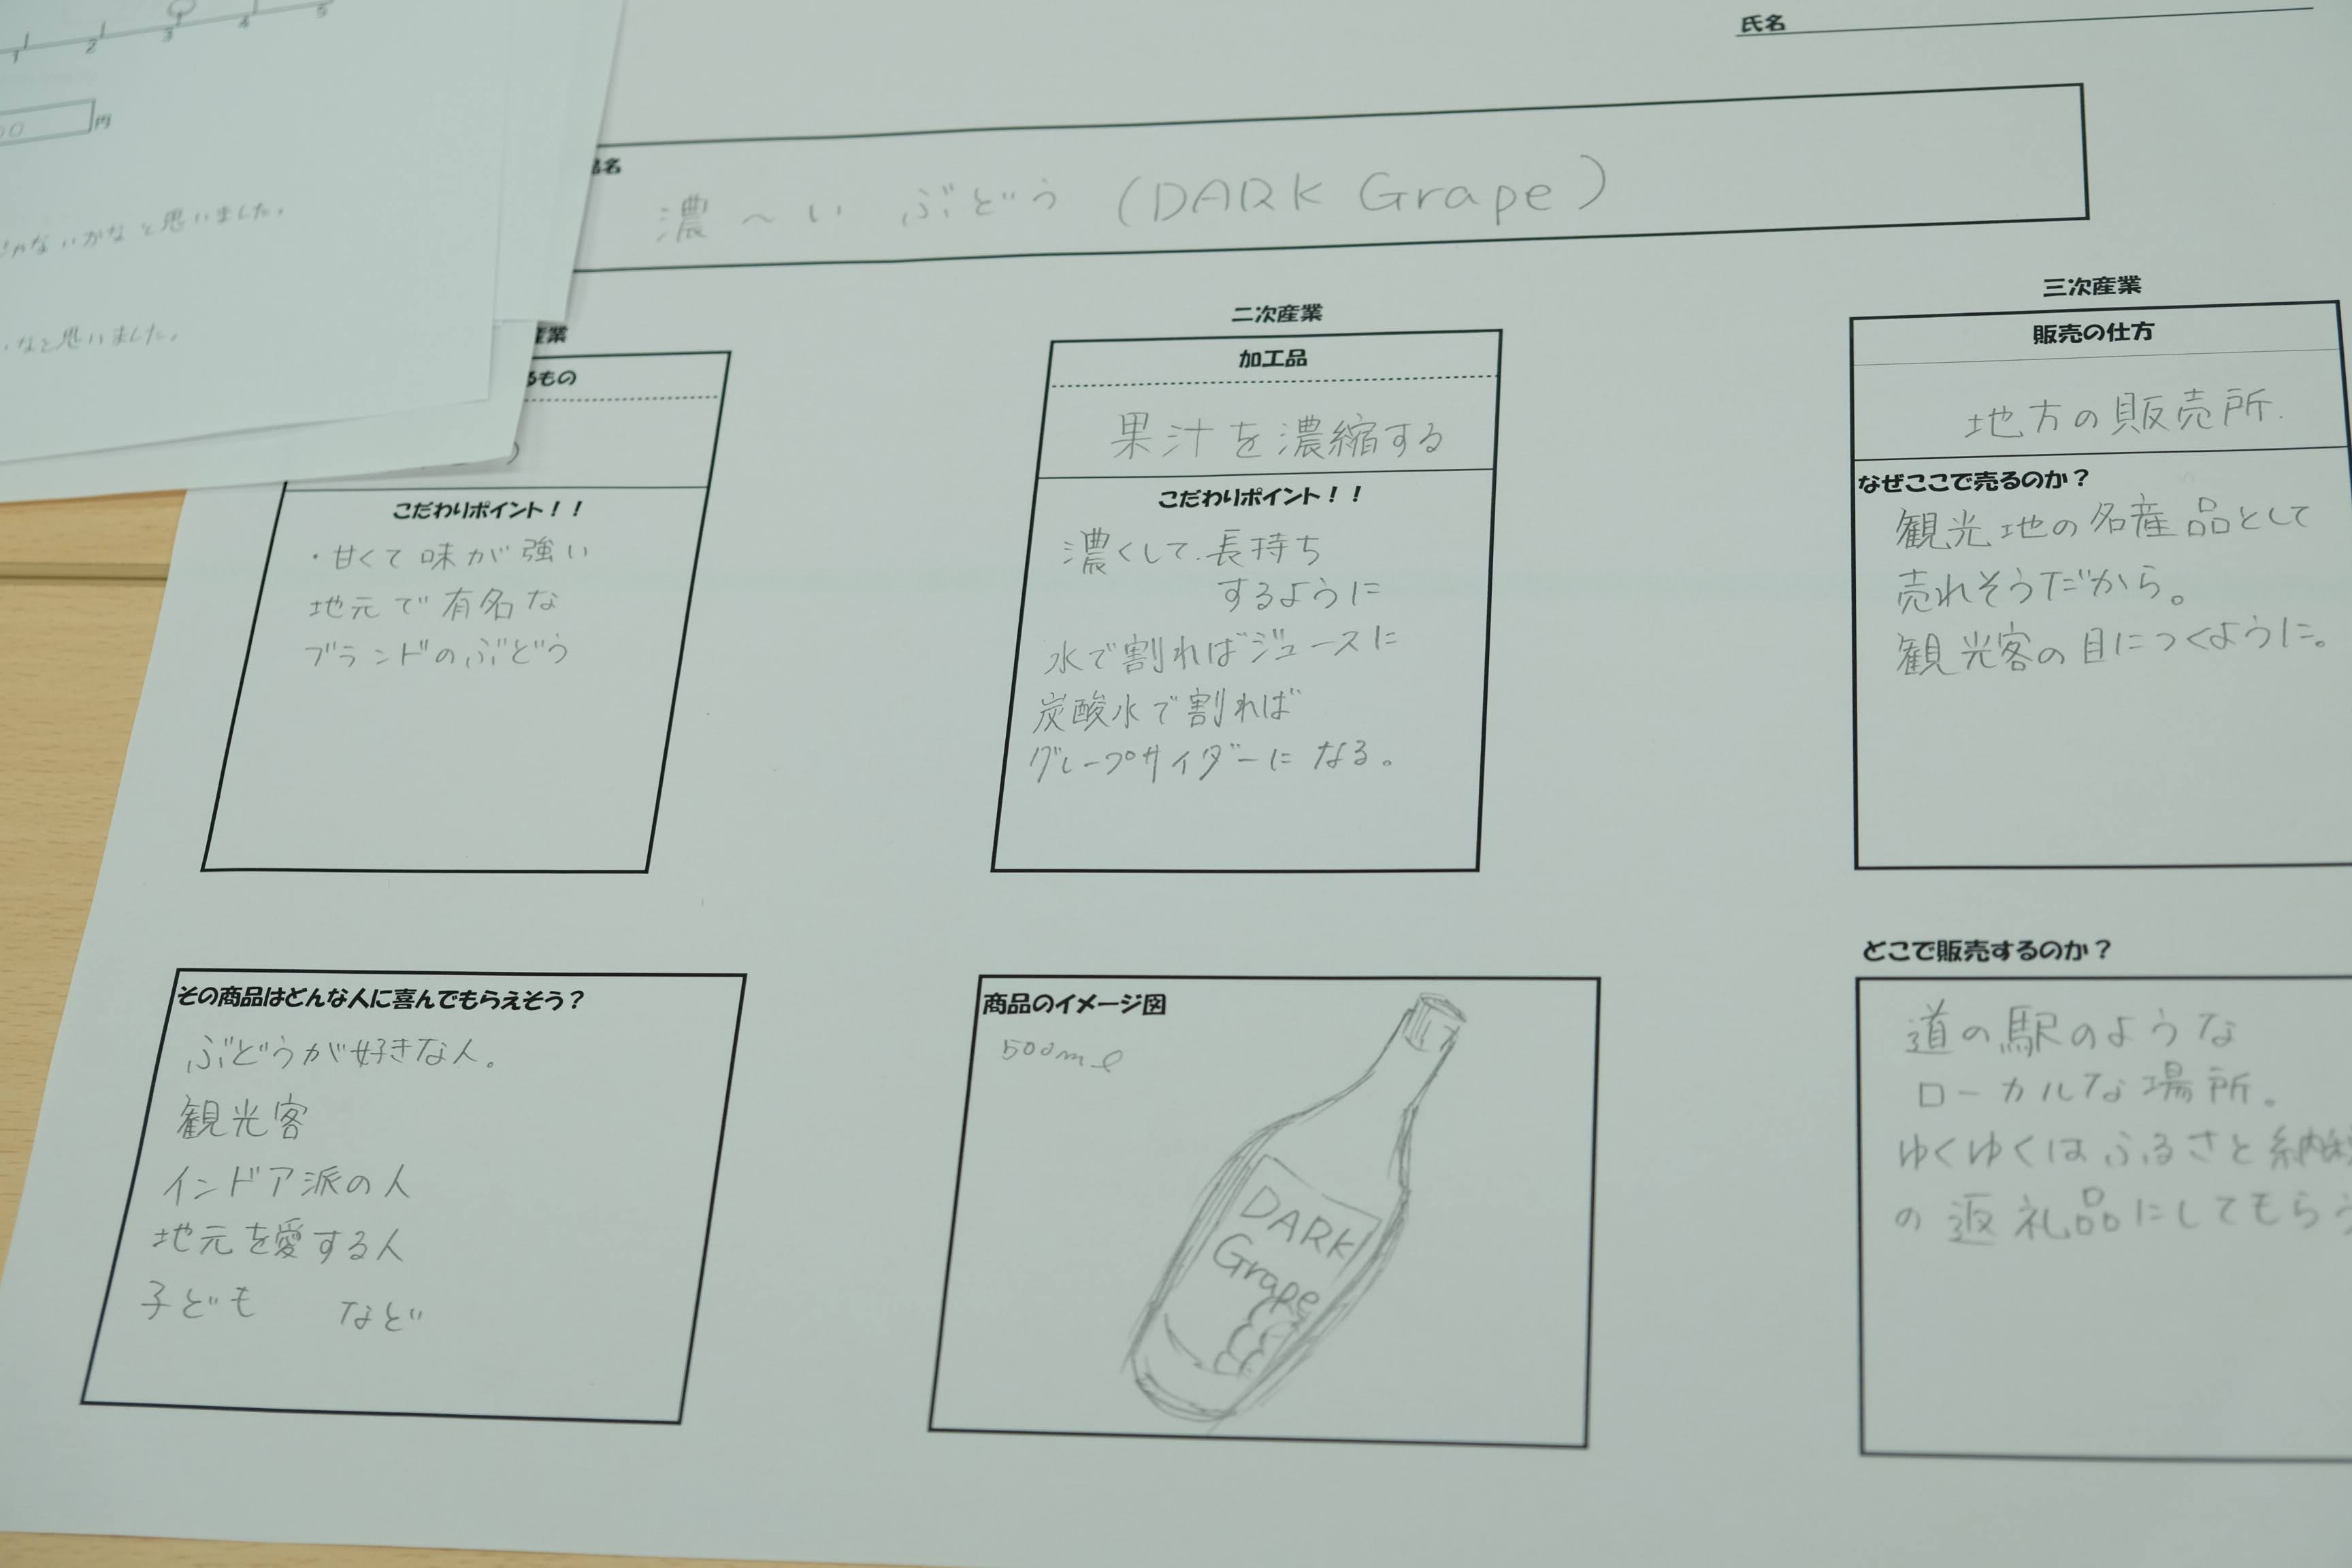 1 2 3 4 5
円
じゃないかなと思いました。
なと思いました。
氏名
品名
濃〜い ぶどう (DARK Grape)
産業
るもの
こだわりポイント！！
・甘くて味が強い
地元で有名な
ブランドのぶどう
二次産業
加工品
果汁を濃縮する
こだわりポイント！！
濃くして.長持ち
するように
水で割ればジュースに
炭酸水で割れば
グレープサイダーになる。
三次産業
販売の仕方
地方の販売所.
なぜここで売るのか？
観光地の名産品として
売れそうだから。
観光客の目につくように。
その商品はどんな人に喜んでもらえそう？
ぶどうが好きな人。
観光客
インドア派の人
地元を愛する人
子ども など
商品のイメージ図
500ml
DARK
Grape
どこで販売するのか？
道の駅のような
ローカルな場所。
ゆくゆくはふるさと納税
の返礼品にしてもらう